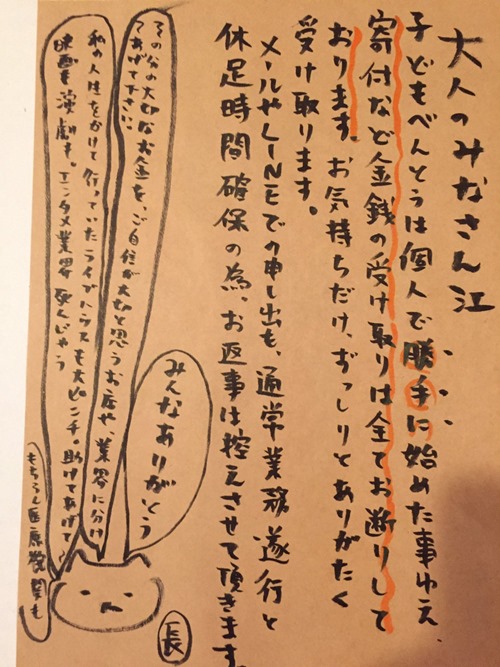 大人のみなさん江
子どもべんとうは個人で勝手に始めた事ゆえ
寄付など金銭の受け取りは全てお断りして
おります。お気持ちだけ、ずっしりとありがたく
受け取ります。
メールやLINEでの申し出も、通常業務遂行と
休足時間確保の為、お返事は控えさせて頂きます
みんなありがとう
その分の大切なお金を、ご自信が大切と思うお店や、業界に分け
てあげて下さい
私の人生をかけて行っていたライブハウスも大ピンチ。助けてあげて〜
映画も演劇も。エンタメ業界死んじゃう
もちろん医療機関も
長